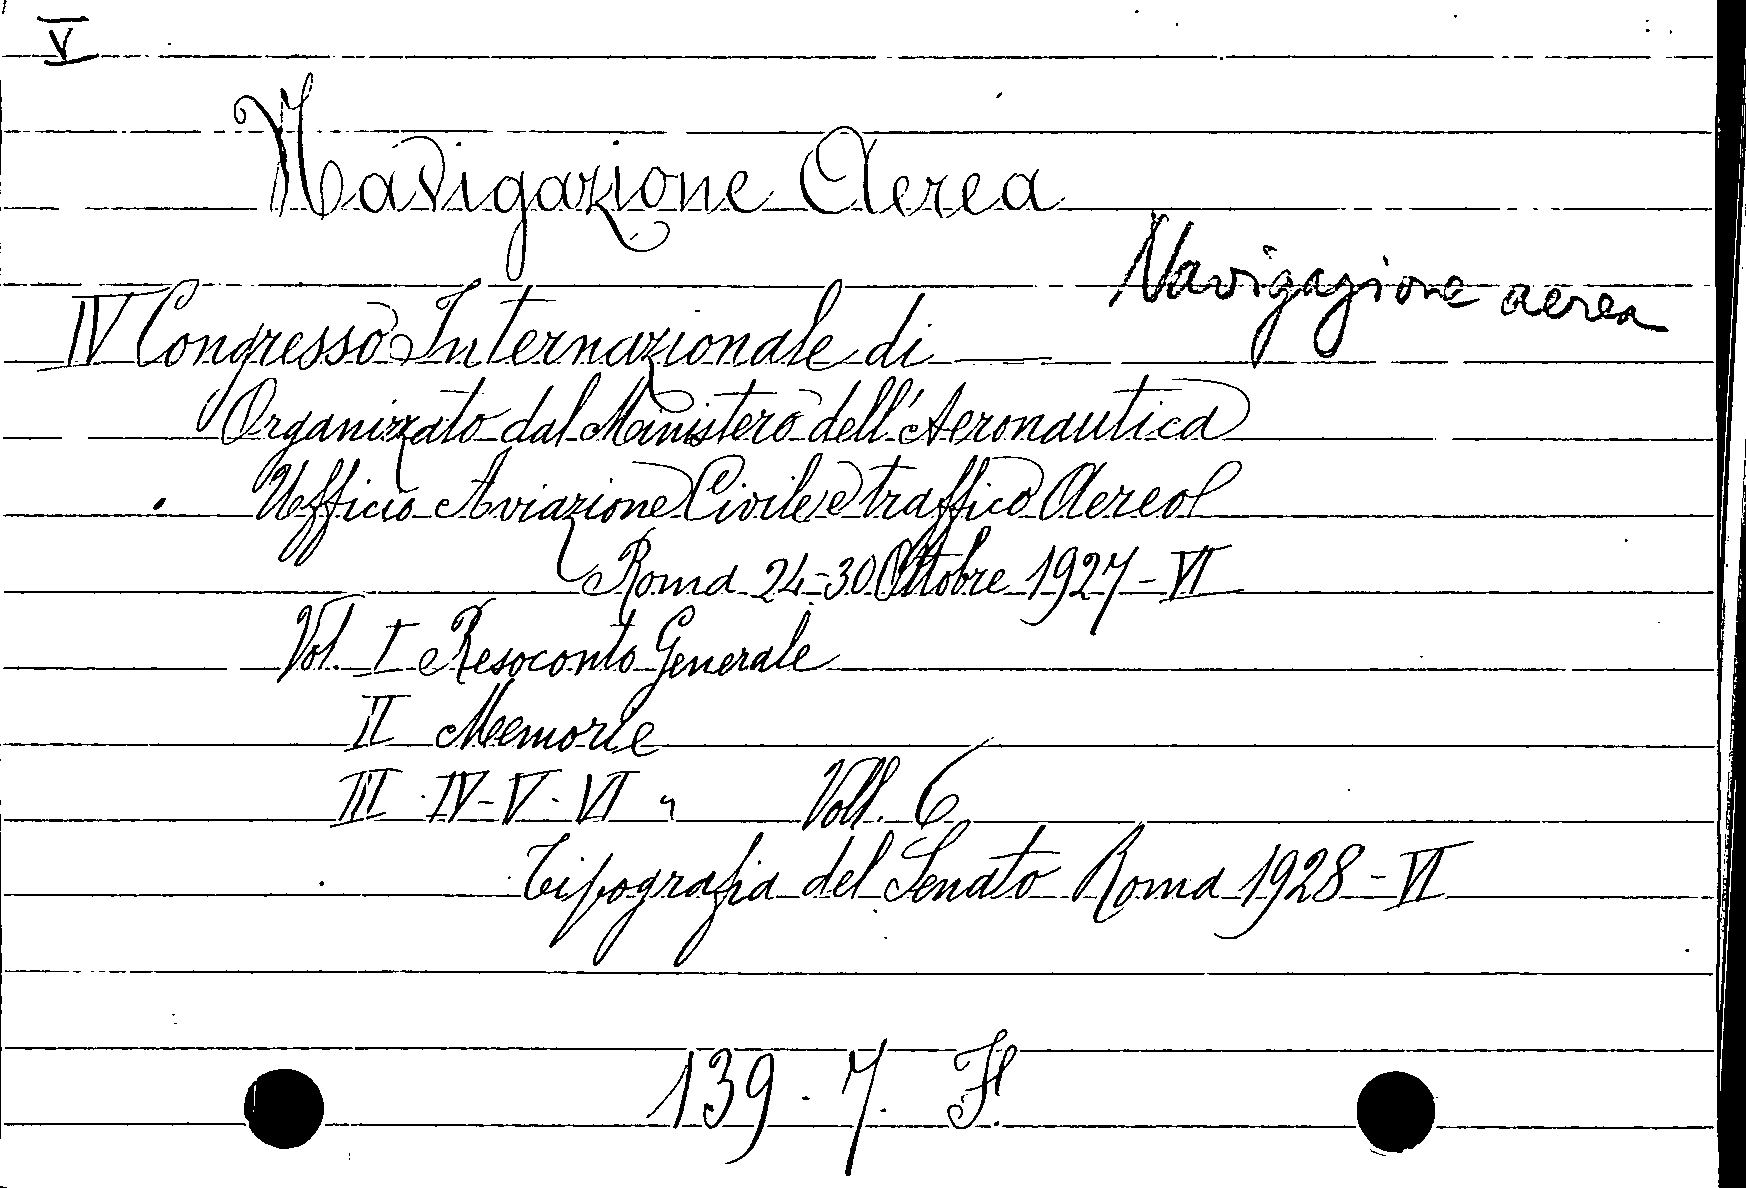 V
Navigazione Aerea
Navigazione aerea
IV Congresso Internazionale di —
Organizzato dal Ministero dell'Aeronautica
Ufficio Aviazione Civile e traffico Aereo
Roma 24-30 Ottobre 1927-VI
Vol. I Resoconto Generale
II Memorie
III-IV-V-VI " Voll. 6
Tipografia del Senato Roma 1928-VI
139. 7. F.